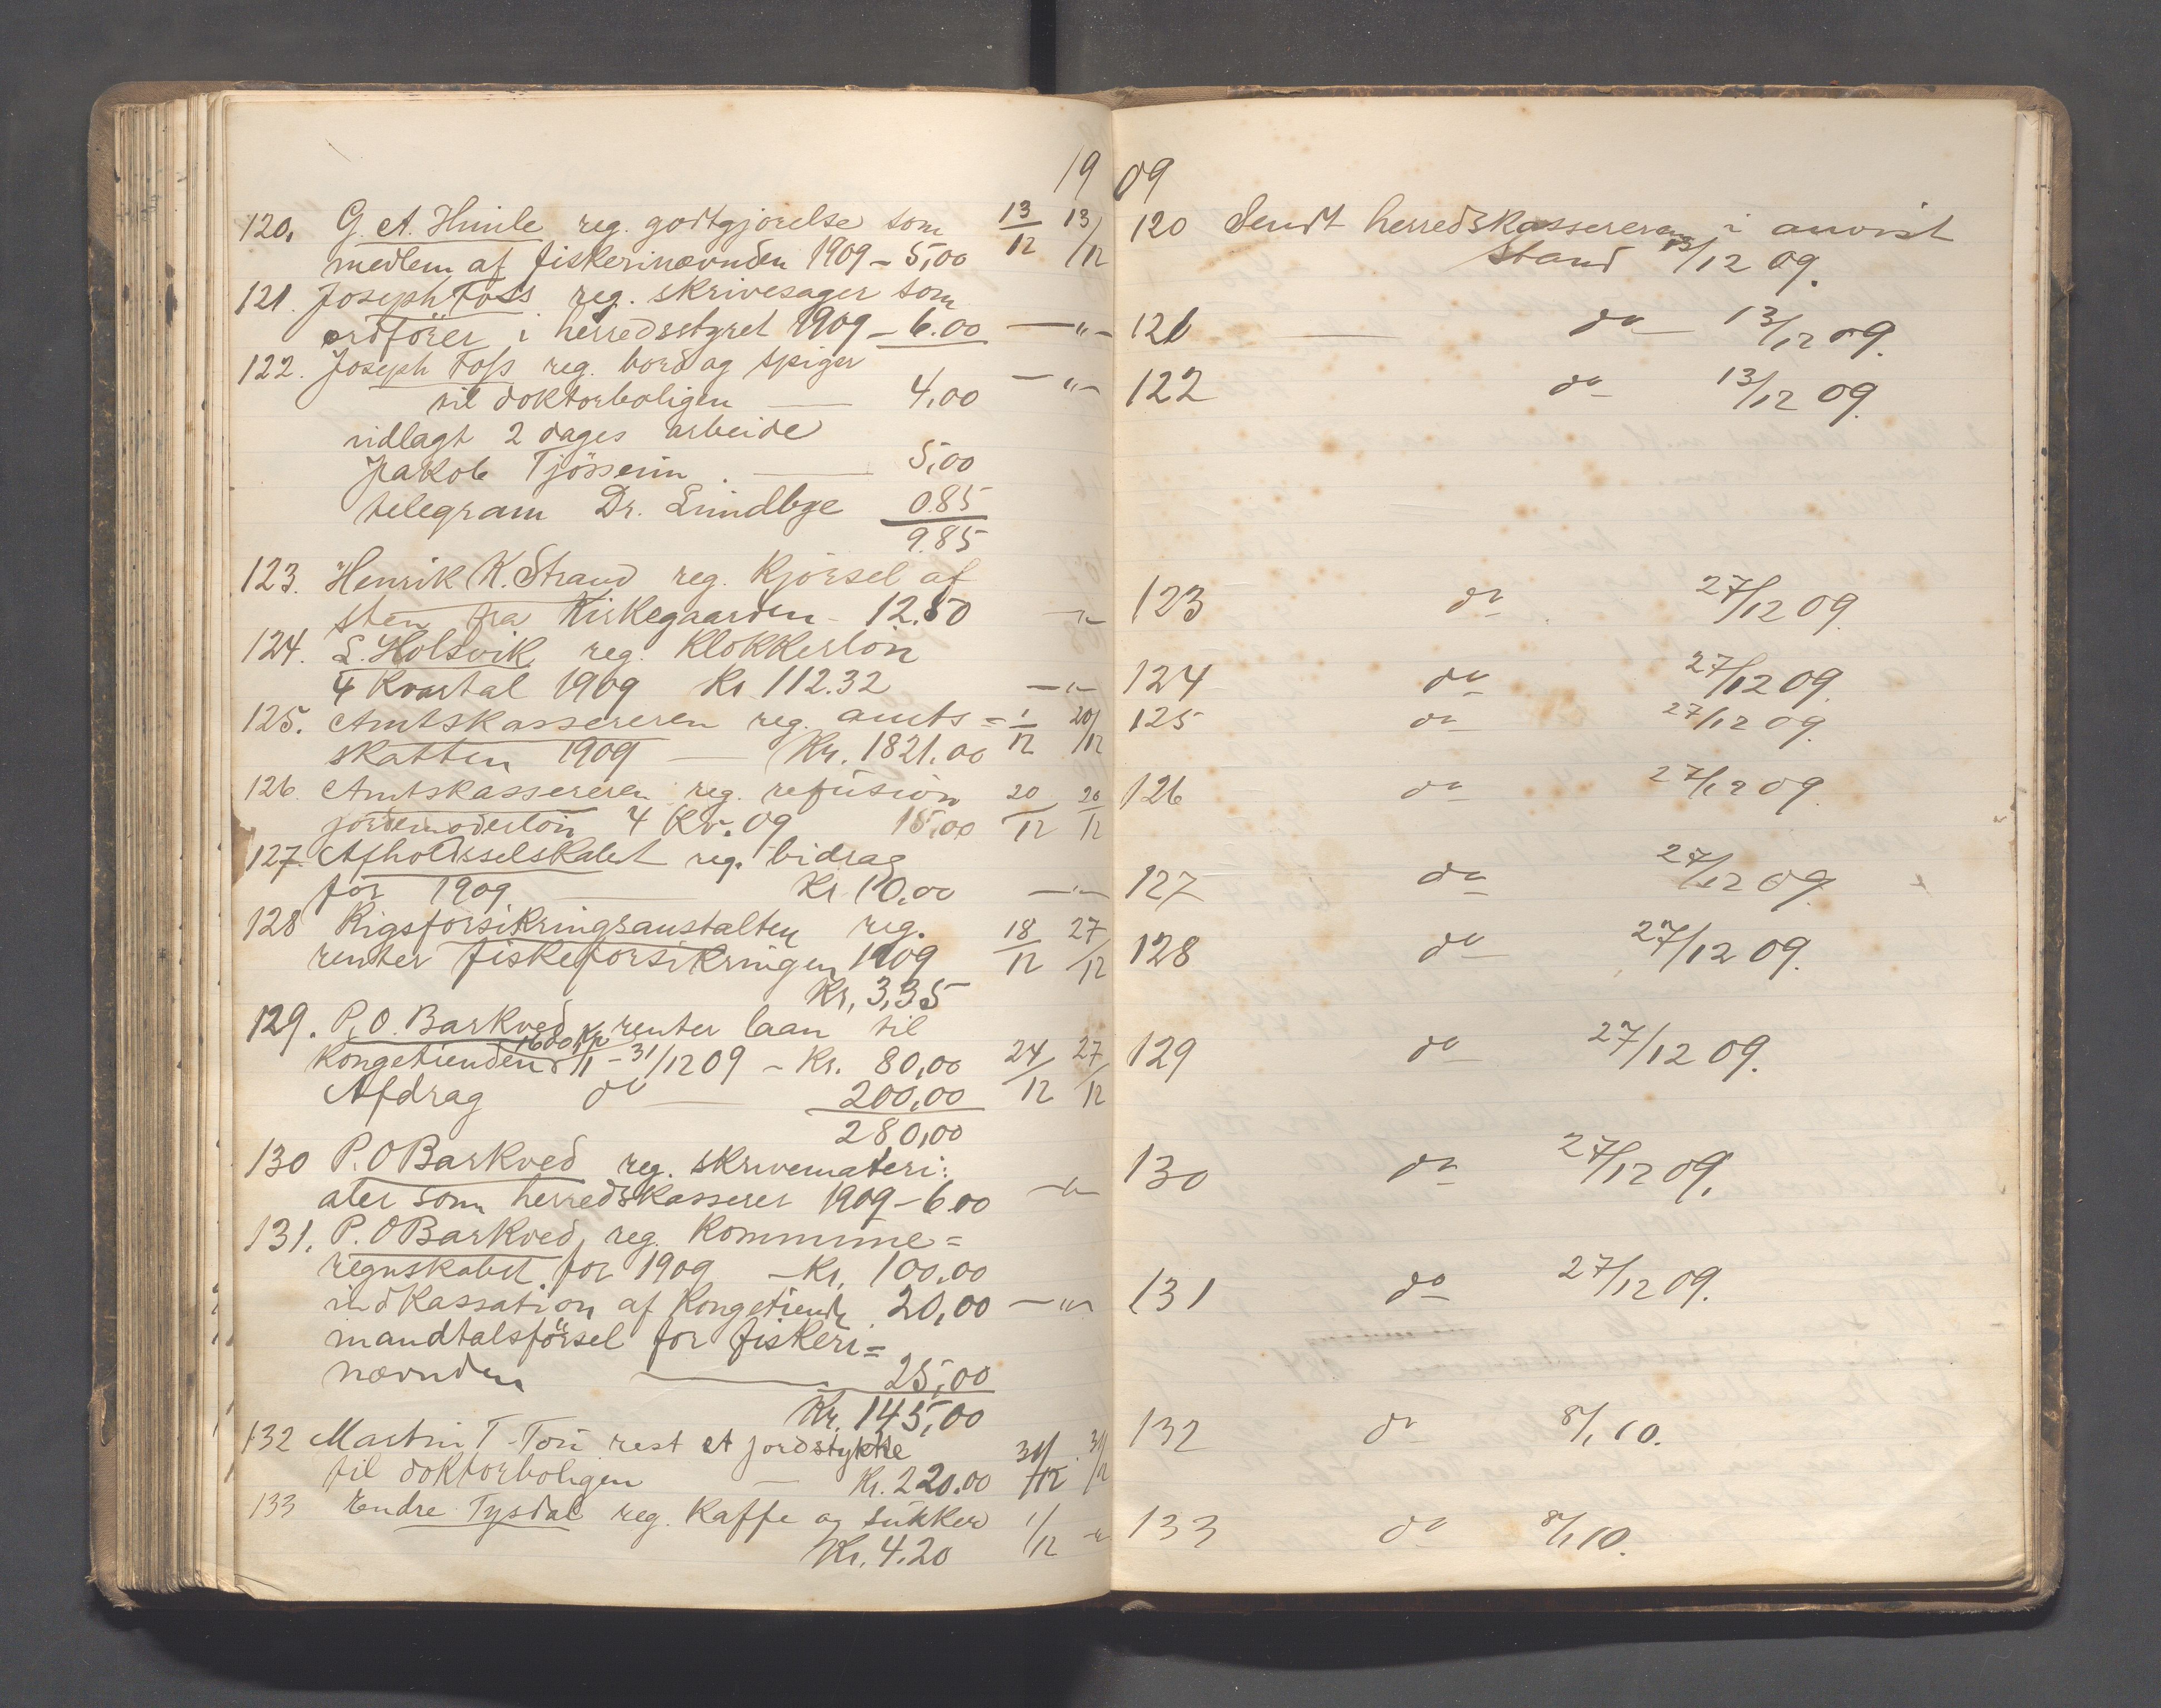 1909
120. G. A. Hinle reg. godtgjörelse som 13/12 13/12
medlem af fiskerinævnden 1909 – 5,00
121. Joseph Foss reg. skrivesager som
ordförer i herredsstyret 1909 – 6.00 — " –
122. Joseph Foss reg. bord og spiger
til doktorboligen — 4,00 — " –
vidlagt 2 dages arbeide
Jakob Tjössem . — 5,00
telegram Dr. Lindbye 0.85
9.85
123. Henrik K. Strand reg. Kjörsel af
sten fra Kirkegaarden – 12.50 – " –
124. L. Holsvik reg. Klokkerlön
4 Kvartal 1909 Kr 112.32 — " –
125. Amtskassereren reg. amts= 1/12 20/12
skatten 1909 — Kr. 1821.00
126. Amtskassereren reg. refusion 20/12 20/12
jordemoderlön 4 Kv. 09 15,00
127. Afholdsselskabet reg. bidrag
for 1909 — Kr 10,00 — " –
128 Rigsforsikringsanstalten reg. 18/12 27/12
renter fiskeforsikringen 1909
Kr. 3,35
129. P. O. Barkved renter laan til
Kongetienden 1600 Kr 1/1 – 31/12 09 – Kr. 80,00 24/12 27/12
Afdrag do — 200,00
280,00
130 P. O Barkved reg. skrivemateri:
aler som herredskasserer 1909 – 6.00 – " –
131. P. O Barkved, reg. Kommune=
regnskabet for 1909 – Kr. 100,00
indkassation af Kongetiende 20,00 — " –
mandtalsförsel for fiskeri=
nævnden — 25,00
Kr. 145,00
132 Martin T. rest et jordstykke 31/12 31/12
til doktorboligen — Kr. 220.00
133 Endre Tysdal reg. Kaffe og sukker 1/12 – " –
Kr. 4.20
120 Sendt herredskassereren i anvist
stand 13/12 09.
121 — do — 13/12 09.
122 do 13/12 09.
123 do 27/12 09.
124 do 27/12 09.
125 do 27/12 09.
126 do 27/12 09.
127 do 27/12 09.
128 do 27/12 09.
129 do 27/12 09.
130 do 27/12 09.
131 do 27/12 09.
132 do 8/1 10.
133 do 8/1 10.